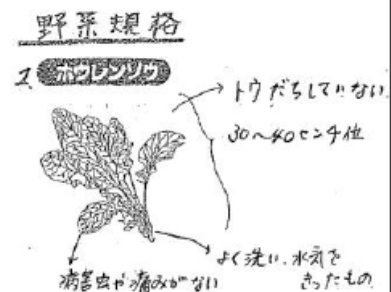 野菜規格
1. ホウレンソウ
トウだちしていない
30〜40センチ位
よく洗い、水気を
きったもの
病害虫や痛みがない